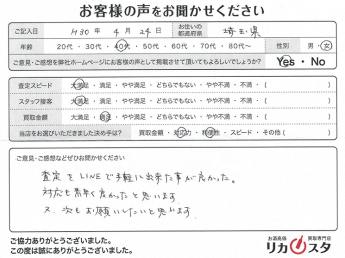 お客様の声をお聞かせください
ご記入日 H30年 4月 24日 お住いの都道府県 埼玉県
年齢 20代・30代・40代・50代・60代・70代・80代〜 性別 男・女
ご意見・ご感想を弊社ホームページにお客様の声として掲載させて頂いてもよろしいでしょうか? Yes・No
査定スピード 大満足・満足・やや満足・どちらでもない・やや不満・不満・( )
スタッフ接客 大満足・満足・やや満足・どちらでもない・やや不満・不満・( )
買取金額 大満足・満足・やや満足・どちらでもない・やや不満・不満・( )
当店をお選びいただきました決め手は? 買取金額・対応力・利便性・スピード・その他( )
ご意見・ご感想などぜひお聞かせください
査定をLINEで手軽に出来た事が良かった。
対応も素早く良かったと思います。
又、次もお願いしたいと思います。
ご協力ありがとうございました。
この度は誠にありがとうございました。
お酒高価 買取専門店
リカスタ